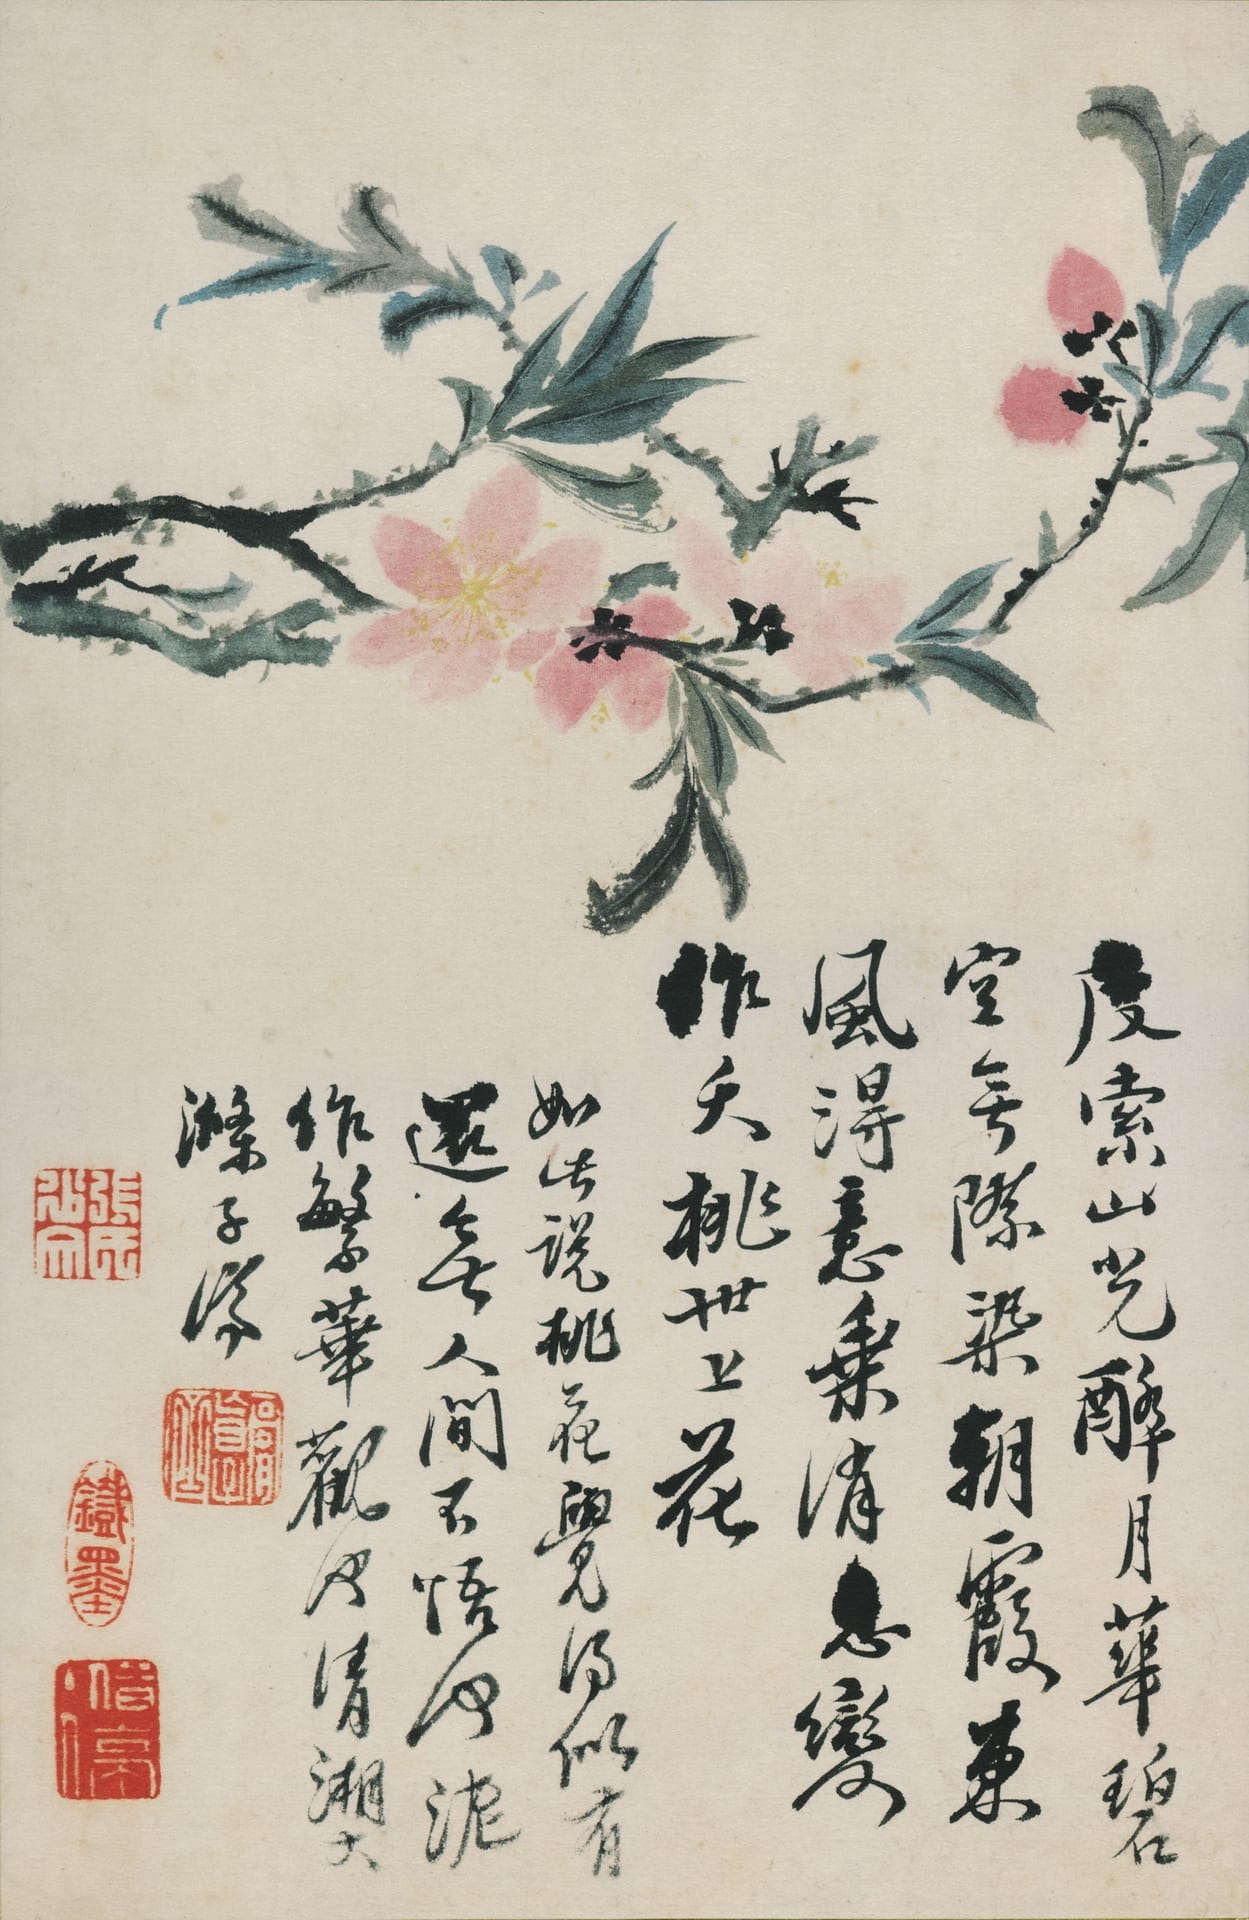 度索山光醉月華碧
空無際染朝霞東
風得意乘消息變
作夭桃世上花
如此說桃花覺得似有
還無人間不悟何泥
作繁華觀何清湘大
滌子濟
鐵墨